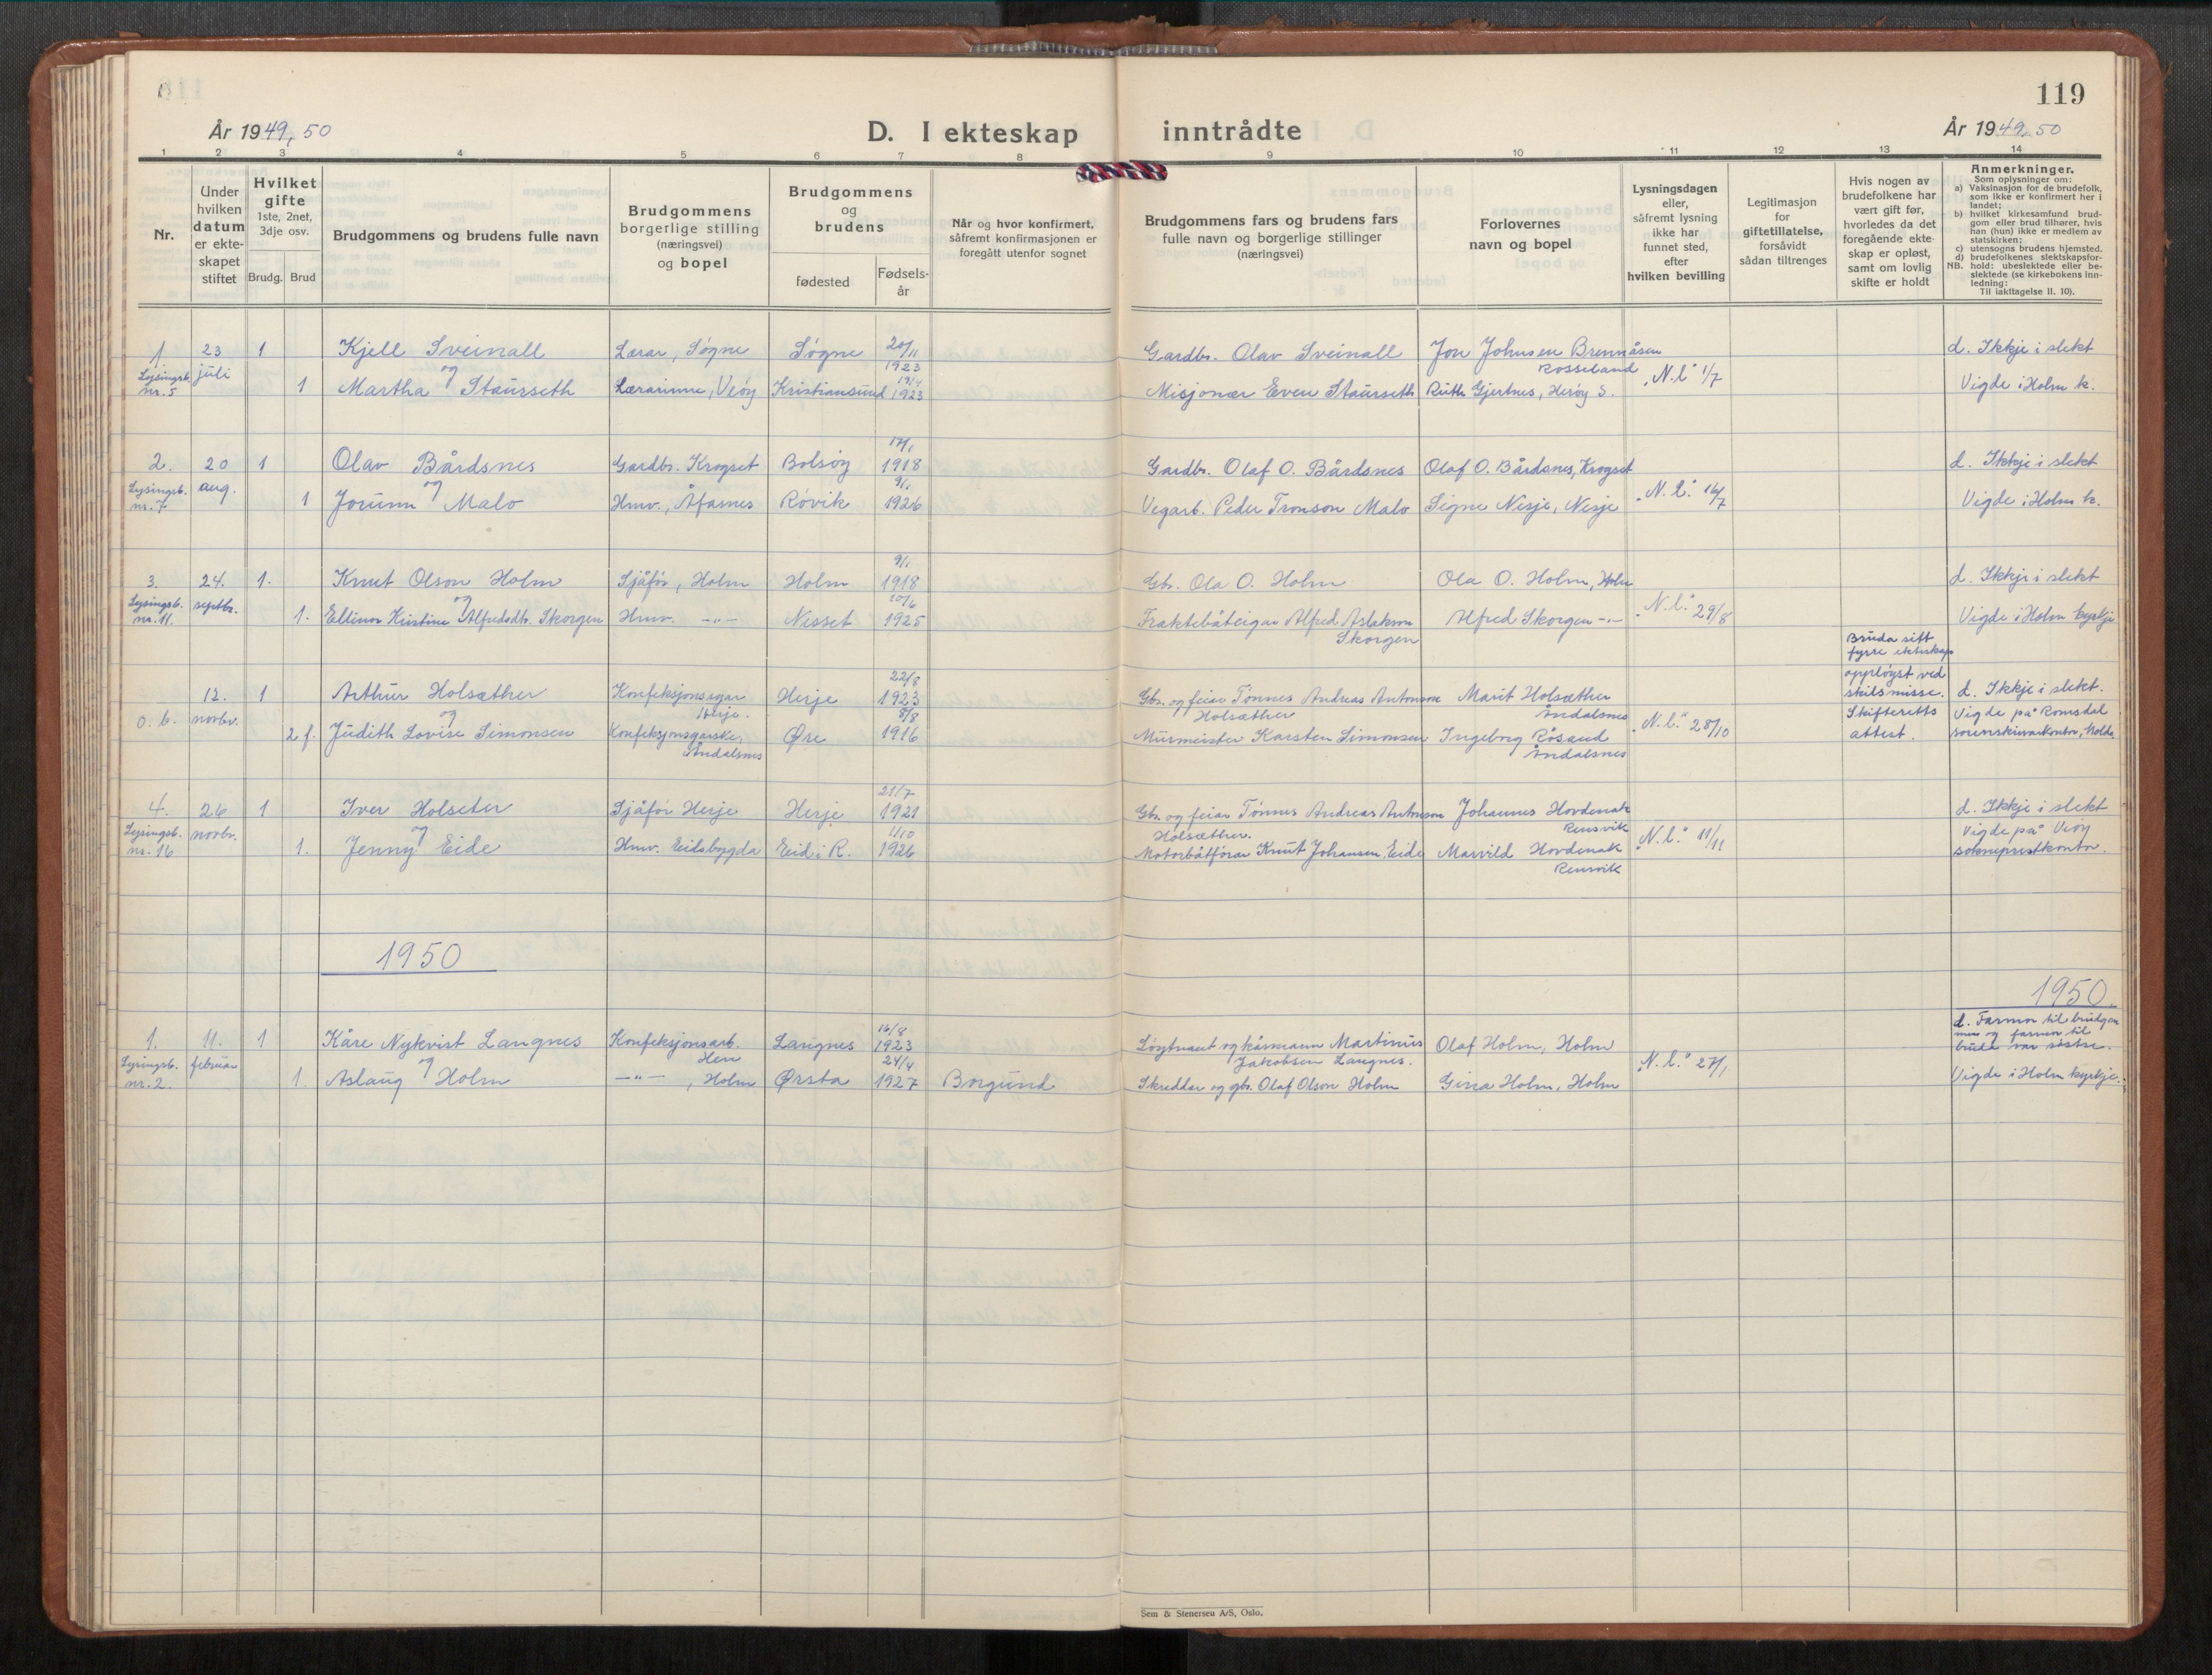 119
År 1949, 50
D. I ekteskap inntrådte
År 1949, 50
1 2 3 4 5 6 7 8 9 10 11 12 13 14
Nr.
Under hvilken datum er ekteskapet stiftet
Hvilket gifte
1ste, 2net, 3dje osv.
Brudg. Brud
Brudgommens og brudens fulle navn
Brudgommens borgerlige stilling (næringsvei) og bopel
Brudgommens og brudens
fødested
Fødsels-år
Når og hvor konfirmert, såfremt konfirmasjonen er foregått utenfor sognet
Brudgommens fars og brudens fars fulle navn og borgerlige stillinger (næringsvei)
Forlovernes navn og bopel
Lysningsdagen eller, såfremt lysning ikke har funnet sted, efter hvilken bevilling
Legitimasjon for giftetillatelse, forsåvidt sådan tiltrenges
Hvis nogen av brudefolkene har vært gift før, hvorledes da det foregående ekteskap er opløst, samt om lovlig skifte er holdt
Anmerkninger.
Som oplysninger om:
a) Vaksinasjon for de brudefolk, som ikke er konfirmert her i landet;
b) hvilket kirkesamfund brudgom eller brud tilhører, hvis han (hun) ikke er medlem av statskirken;
c) utensogns brudens hjemsted.
d) brudefolkenes slektskapsforhold: ubeslektede eller beslektede (se kirkebokens innledning:
NB.
Til iakttagelse II. 10).
1 23 1 Kjell Sveinall Lærar, Søgne Søgne 20/11 1923 Gardbr. Olav Sveinall Jon Johnsen Brennåsen Rosseland d. Ikkje i slekt
Lysingsb. nr. 5 juli og 1 Martha Staurseth Lærarinne, Veøy Kristiansund 19/4 1923 Misjonær Even Staurseth Ruth Gjertnes, Herøy S. "N.l." 1/7 Vigde i Holm k.
2. 20 1 Olav Bårdsnes Gardbr. Krogset Bolsøy 17/1 1918 Gardbr. Olaf O. Bårdsnes Olaf O. Bårdsnes, Krogset d. Ikkje i slekt
Lysingsb. nr. 7 aug. og 1 Jorunn Malo Hmv., Åfarnes Røvik 9/1 1926 Vegarb. Peder Tronson Malo Signe Nisje, Nesje "N.l." 16/7 Vigde i Holm k.
3. 24. 1. Knut Olson Holm Sjåfør, Holm Holm 9/1 1918 Gbr. Ola O. Holm Ola O. Holm, Holm d. Ikkje i slekt
Lysingsb. nr. 11. septbr. og 1. Ellinor Kristine Alfredsdtr. Skorgen Hmv. -"- Nesset 20/6 1925 Fraktebåteigar Alfred Aslakson Skorgen Alfred Skorgen -"- "N.l." 29/8 Vigde i Holm kyrkje
12. 1 Arthur Holsæther Konfeksjonseigar Herje. Herje 22/8 1923 Gbr. og feiar Tønnes Andreas Antonson Holsæther Marit Holsæther Åndalsnes Bruda sitt fyrre ekteskap oppløyst ved skilsmisse. d. Ikkje i slekt.
0. 6. novbr. og 2 f. Judith Lovise Simonsen Åndalsnes Øre 8/8 1916 Murmeister Karsten Simonsen Ingeborg Røsand Åndalsnes "N.l." 28/10 Skifteretts attest. Vigde på Romsdal sorenskrivarkontor, Molde
4. 26 1 Iver Holseter Sjåfør Herje Herje 21/7 1921 Gbr. og feiar Tønnes Andreas Antonson Holsæther. Johannes Hovdenak Rensvik d. Ikkje i slekt
Lysingsb. nr. 16 novbr. og 1. Jenny Eide Hmv. Eidsbygda Eid i R. 1/10 1926 Motorbåtførar Knut Johansen Eide Marvild Hovdenak Rensvik "N.l." 11/11 Vigde på Veøy sokneprestkontor.
1950
1950.
1. 11. 1 Kåre Nykvist Langnes Konfeksjonsarb. Hen Langnes 16/8 1923 Løytnant og kårmann Martinus Jakobsen Langnes. Olaf Holm, Holm d. Farmor til brudgommen og farmor til bruda var søstre.
Lysingsb. nr. 2. februar og 1. Aslaug Holm -"- , Holm Ørsta 24/4 1927 Borgund Skreddar og gbr. Olaf Olson Holm Gina Holm, Holm "N.l." 27/1 Vigde i Holm kyrkje.
Sem & Stenersen A/S, Oslo.